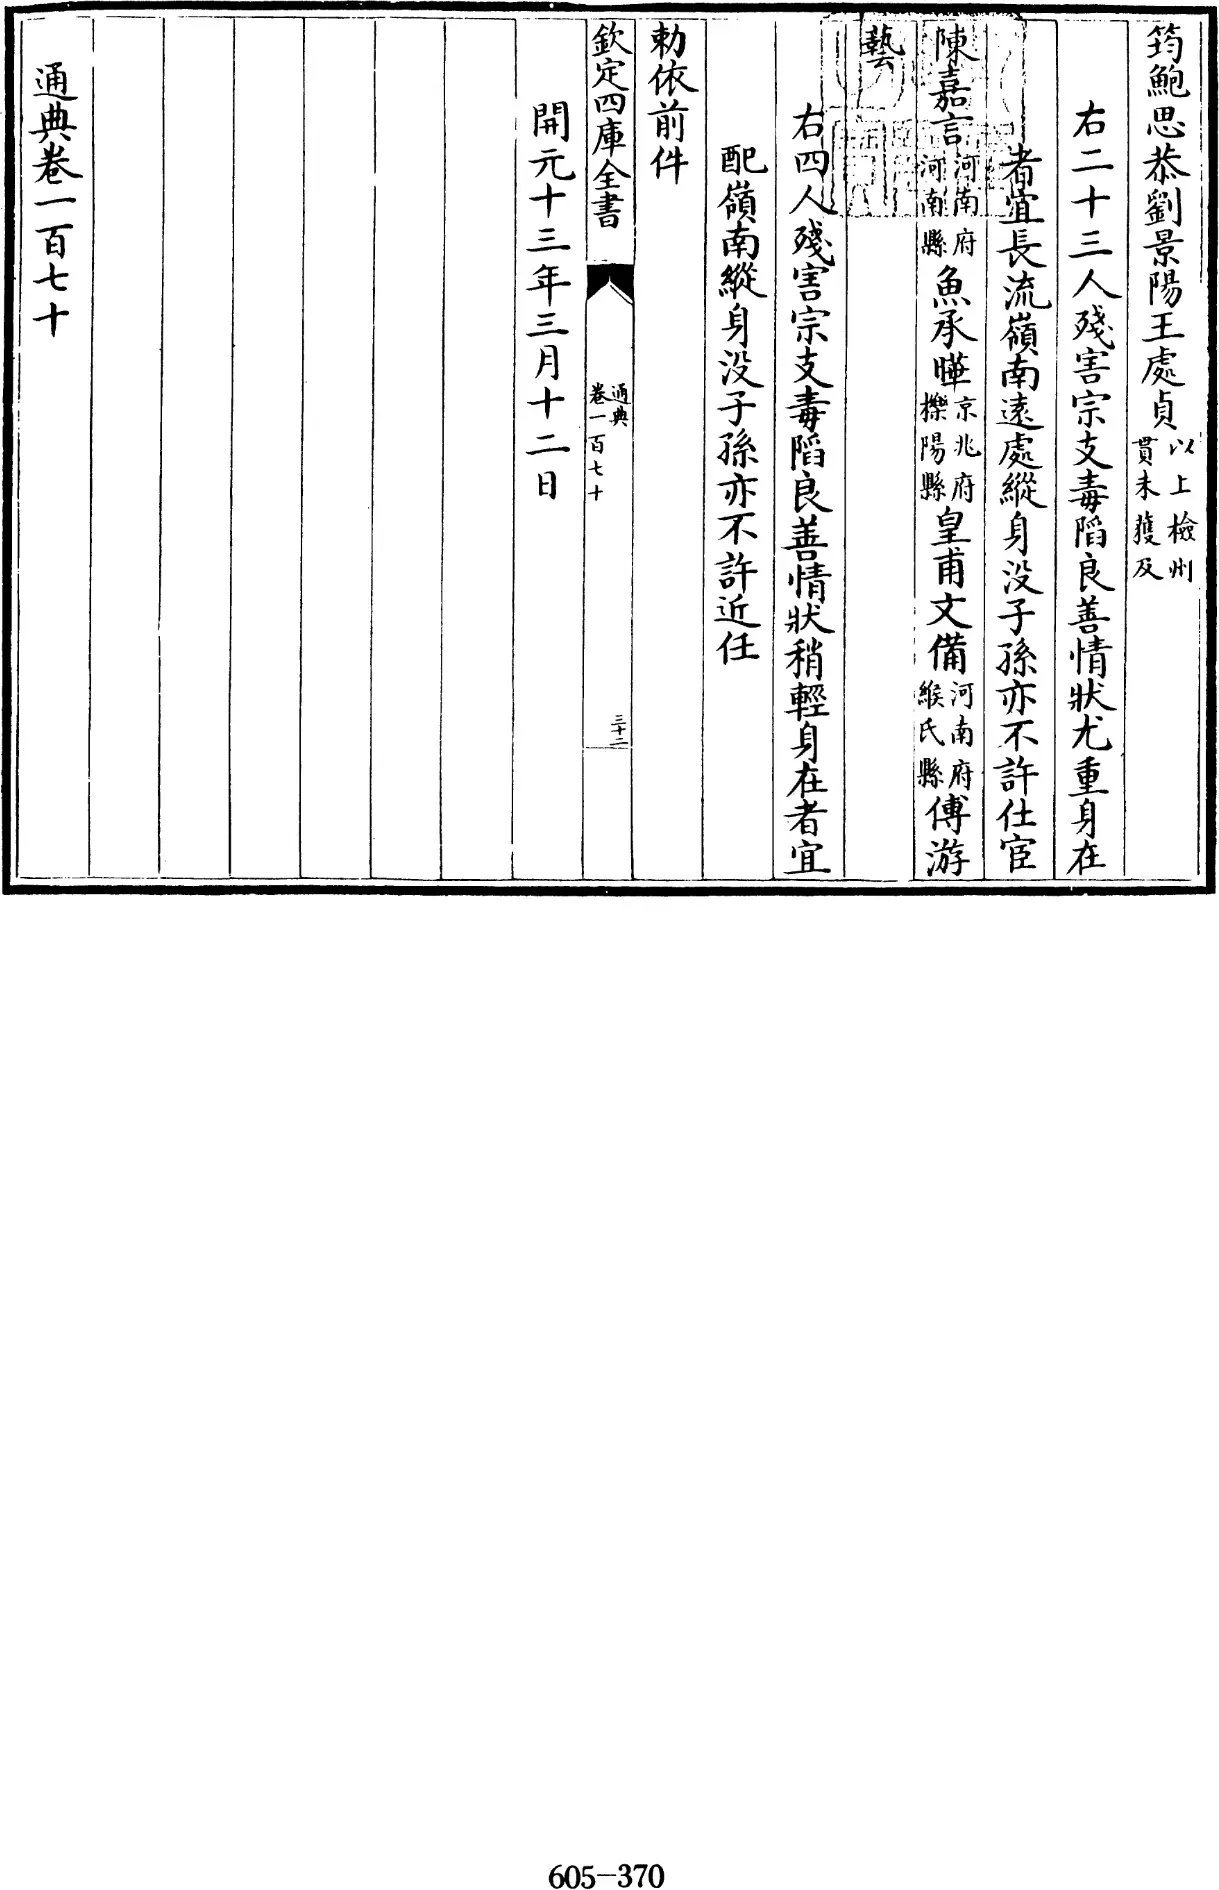 筠鮑思恭劉景陽王處貞以上檢州貫未獲及
右二十三人殘害宗支毒陷良善情狀尤重身在
者宜長流嶺南遠處縱身没子孫亦不許仕宦
陳嘉言河南府河南縣魚承曄京兆府櫟陽縣皇甫文備河南府緱氏縣傅游
藝
右四人殘害宗支毒陷良善情狀稍輕身在者宜
配嶺南縱身没子孫亦不許近任
勅依前件
欽定四庫全書 通典卷一百七十 三十二
開元十三年三月十二日
通典卷一百七十
605-370